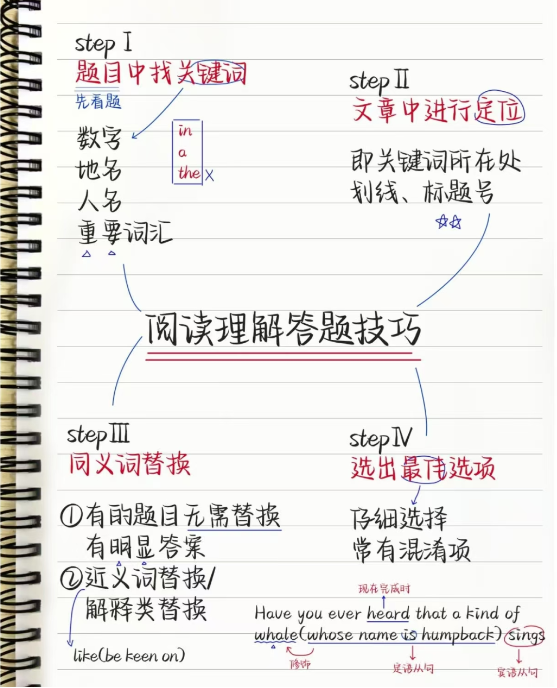 step Ⅰ
题目中找关键词
先看题
数字
地名
人名
重要词汇
in
a
the X
step Ⅱ
文章中进行定位
即关键词所在处
划线、标题号
阅读理解答题技巧
step Ⅲ
同义词替换
①有的题目无需替换
有明显答案
②近义词替换/
解释类替换
like(be keen on)
step Ⅳ
选出最佳选项
仔细选择
常有混淆项
现在完成时
Have you ever heard that a kind of
whale(whose name is humpback) sings
修饰
定语从句
宾语从句